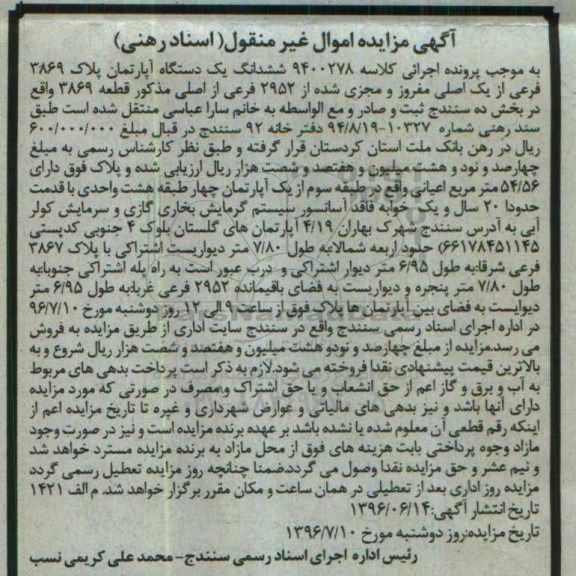 آگهی مزایده اموال غیر منقول( اسناد رهنی)
به موجب پرونده اجرائی کلاسه ۹۴۰۰۲۷۸ ششدانگ یک دستگاه آپارتمان پلاک ۳۸۶۹
فرعی از یک اصلی مفروز و مجزی شده از ۲۹۵۲ فرعی از اصلی مذکور قطعه ۳۸۶۹ واقع
در بخش ده سنندج ثبت و صادر و مع الواسطه به خانم سارا عباسی منتقل شده است طبق
سند رهنی شماره ۱۰۳۲۷-۹۴/۸/۱۹ دفتر خانه ۹۲ سنندج در قبال مبلغ ۶۰۰/۰۰۰/۰۰۰
ریال در رهن بانک ملت استان کردستان قرار گرفته و طبق نظر کارشناس رسمی به مبلغ
چهارصد و نود و هشت میلیون و هفتصد و شصت هزار ریال ارزیابی شده و پلاک فوق دارای
۵۴/۵۶ متر مربع اعیانی واقع در طبقه سوم از یک آپارتمان چهار طبقه هشت واحدی با قدمت
حدودا ۲۰ سال و یک خوابه فاقد آسانسور سیستم گرمایش بخاری گازی و سرمایش کولر
آبی به آدرس سنندج شهرک بهاران ۴/۱۹ آپارتمان های گلستان بلوک ۴ جنوبی کدپستی
۶۶۱۷۸۴۵۱۱۴۵) حدود اربعه شمالا:به طول ۷/۸۰ متر دیواریست اشتراکی با پلاک ۳۸۶۷
فرعی شرقا:به طول ۶/۹۵ متر دیوار اشتراکی و درب عبور است به راه پله اشتراکی جنوبا:به
طول ۷/۸۰ متر پنجره و دیواریست به فضای باقیمانده ۲۹۵۲ فرعی غربا:به طول ۶/۹۵ متر
دیوایست به فضای بین آپارتمان ها پلاک فوق از ساعت ۹ الی ۱۲ روز دوشنبه مورخ ۹۶/۷/۱۰
در اداره اجرای اسناد رسمی سنندج واقع در سنندج سایت اداری از طریق مزایده به فروش
می رسد.مزایده از مبلغ چهارصد و نودو هشت میلیون و هفتصد و شصت هزار ریال شروع و به
بالاترین قیمت پیشنهادی نقدا فروخته می شود.لازم به ذکر است پرداخت بدهی های مربوط
به آب و برق و گاز اعم از حق انشعاب و یا حق اشتراک و مصرف در صورتی که مورد مزایده
دارای آنها باشد و نیز بدهی های مالیاتی و عوارض شهرداری و غیره تا تاریخ مزایده اعم از
اینکه رقم قطعی آن معلوم شده یا نشده باشد بر عهده برنده مزایده است و نیز در صورت وجود
مازاد وجوه پرداختی بابت هزینه های فوق از محل مازاد به برنده مزایده مسترد خواهد شد
و نیم عشر و حق مزایده نقدا وصول می گردد.ضمنا چنانچه روز مزایده تعطیل رسمی گردد
مزایده روز اداری بعد از تعطیلی در همان ساعت و مکان مقرر برگزار خواهد شد. م الف ۱۴۲۱
تاریخ انتشار آگهی:۱۳۹۶/۰۶/۱۴
تاریخ مزایده:روز دوشنبه مورخ ۱۳۹۶/۷/۱۰
رئیس اداره اجرای اسناد رسمی سنندج- محمد علی کریمی نسب